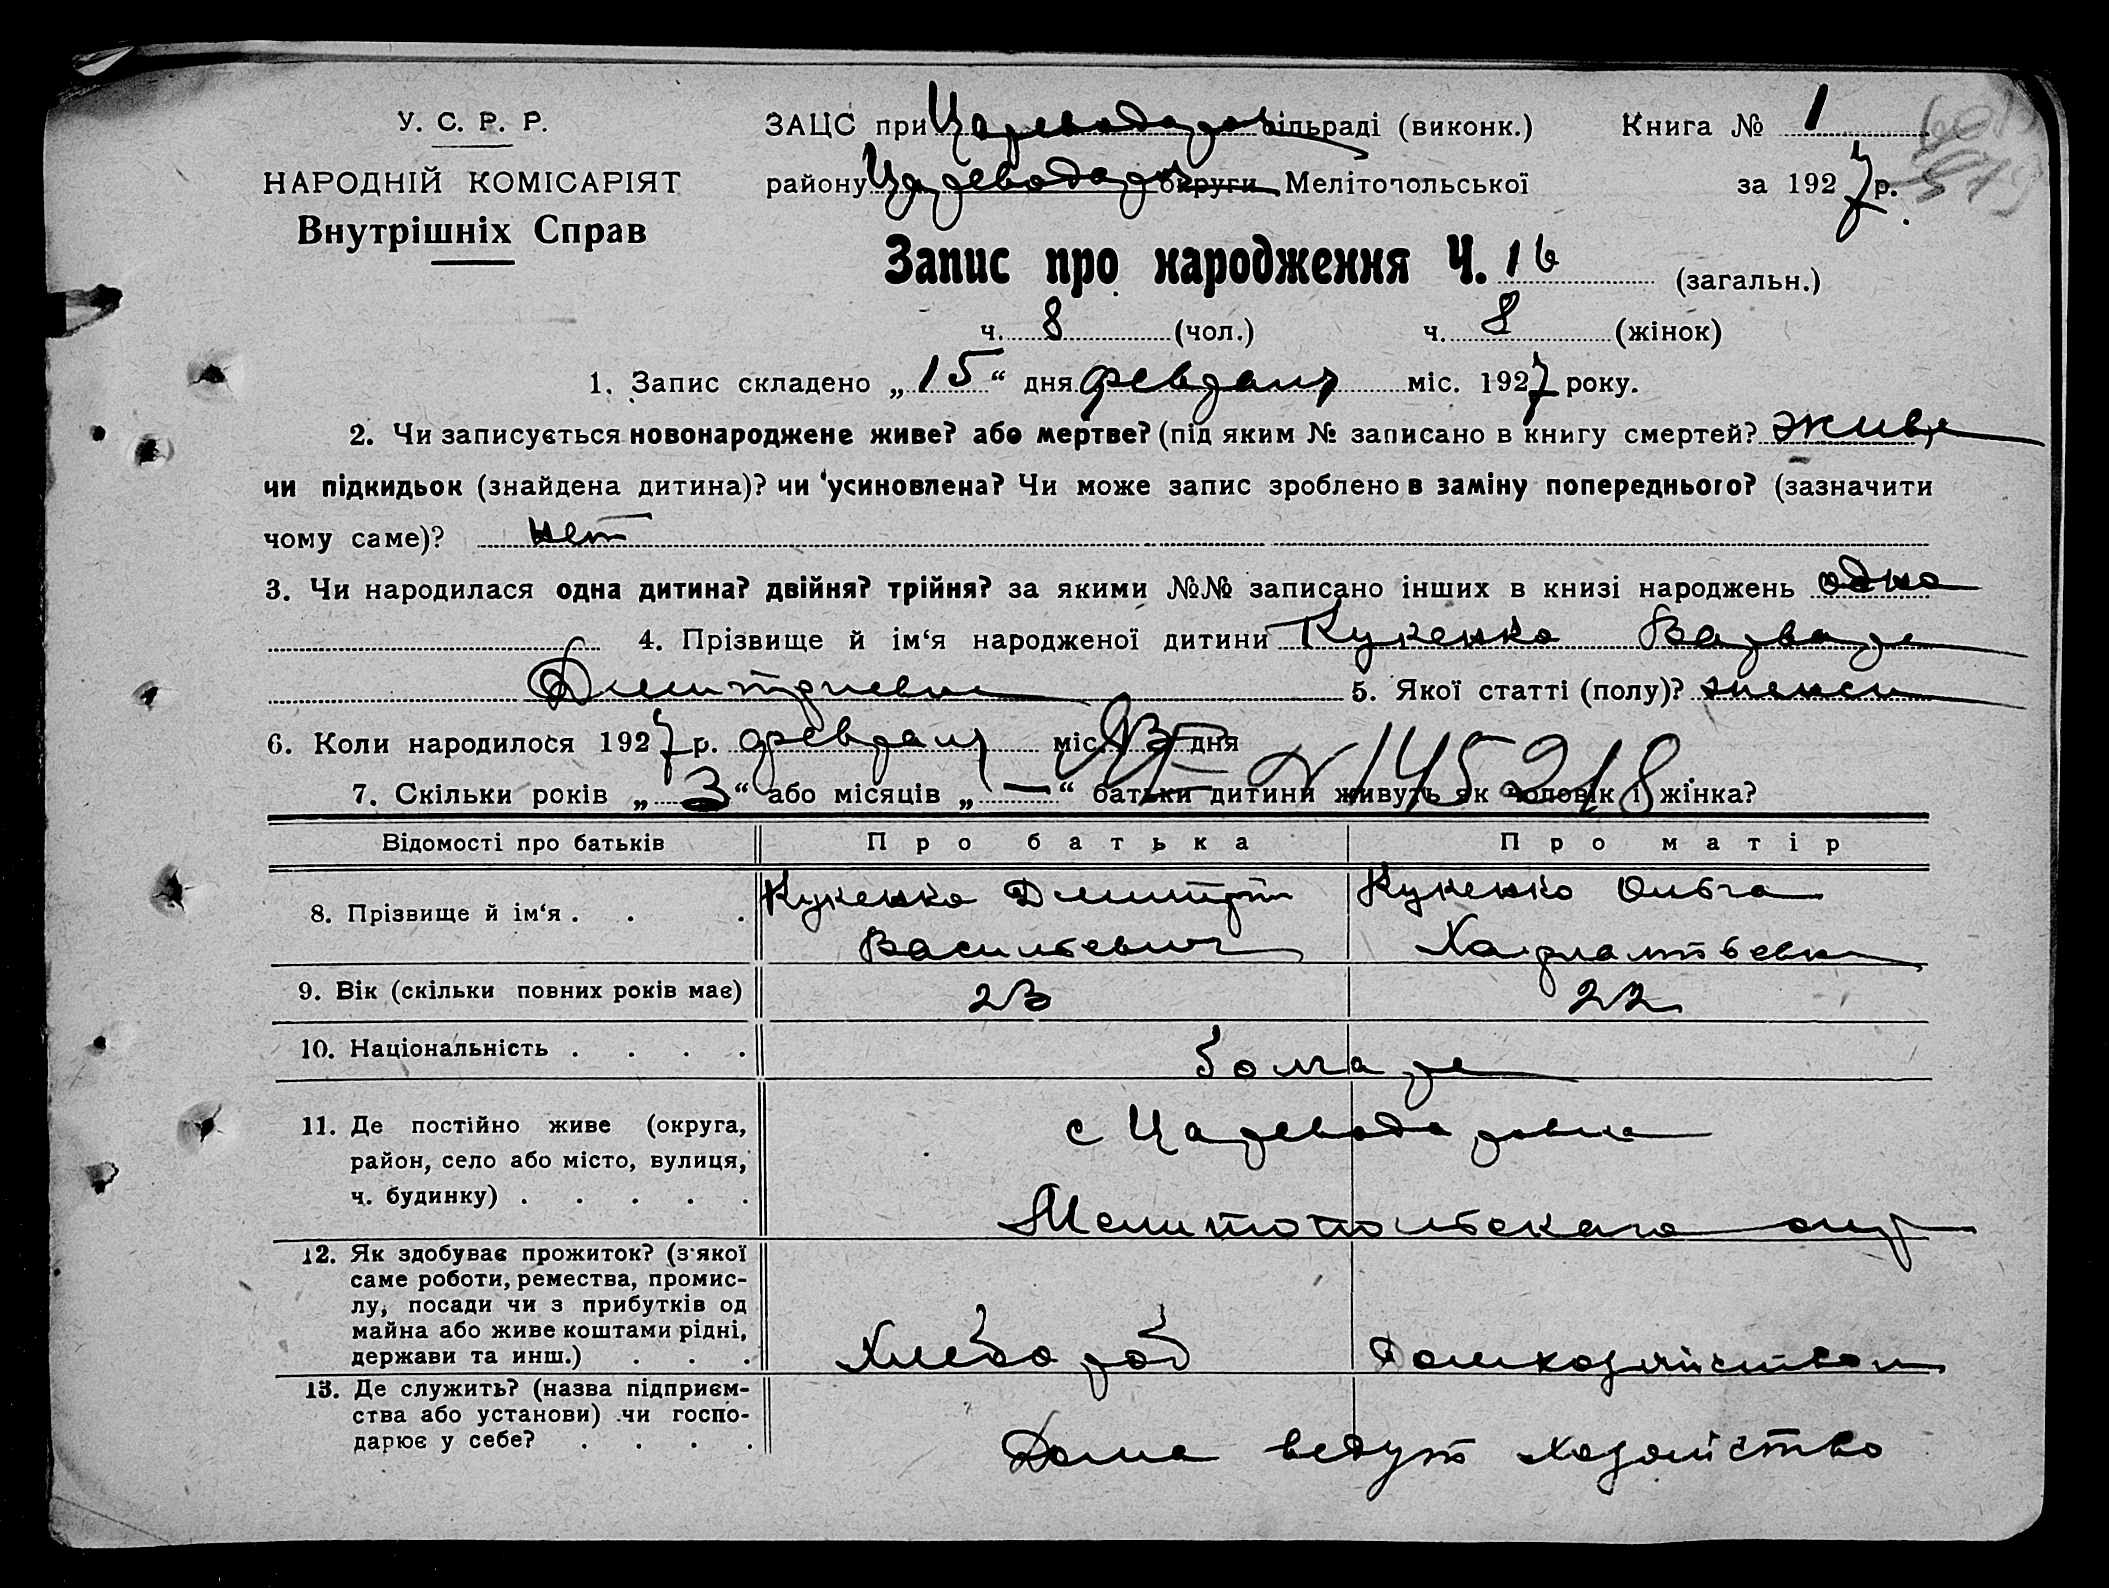 У. С. Р. Р.
НАРОДНІЙ КОМІСАРІЯТ
Внутрішніх Справ
ЗАЦС при Царевода сільраді (виконк.) Книга № 1
району округи Мелітопольської за 1927 р.
Запис про народження Ч. 16 (загальн.)
ч. 8 (чол.) ч. 8 (жінок)
1. Запис складено „15“ дня февраля міс. 1927 року.
2. Чи записується новонароджене живе? або мертве? (під яким № записано в книгу смертей?
чи підкидьок (знайдена дитина)? чи усиновлена? Чи може запис зроблено в заміну попереднього? (зазначити
чому саме)? нет
3. Чи народилася одна дитина? двійня? трійня? за якими №№ записано інших в книзі народжень одна
4. Прізвище й ім‘я народженої дитини Кукенко Варвара
Дмитриевна 5. Якої статті (полу)? женск
6. Коли народилося 1927 р. февраля міс. дня
N 145218
7. Скільки років „3“ або місяців „—“ батьки дитини живуть як чоловік і жінка?
Відомості про батьків Про батька Про матір
8. Прізвище й ім‘я . . . Кукенко Дмитрий Кукенко Ольга
Васильевич Харлампьевна
9. Вік (скільки повних років має) 23 22
10. Національність . . . . болгаре
11. Де постійно живе (округа,
район, село або місто, вулиця,
ч. будинку) . . . . .
с Цареводаровка
Мелитопольскаго окр
12. Як здобуває прожиток? (з'якої
саме роботи, ремества, промис-
лу, посади чи з прибутків од
майна або живе коштами рідні,
держави та инш.) . . .
Хлебороб Домхозяйством
13. Де служить? (назва підприєм-
ства або установи) чи госпо-
дарює у себе? . . . .
Дома ведут хозяйство